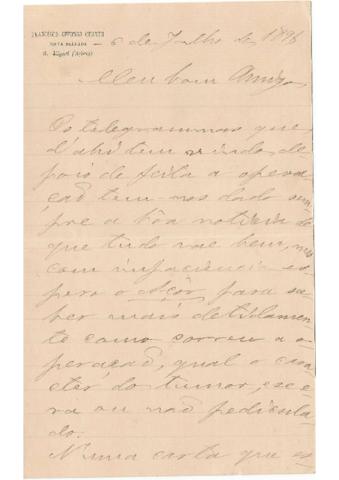 FRANCISCO AFFONSO CHAVES
PONTA DELGADA
S. Miguel (Açores)
6 de Julho de 1896
Meu bom Amigo
Os telegrammas que
d'ahi tem vindo, de-
pois de feita a opera-
çaõ tem-nos dado sem-
pre a bôa noticia de
que tudo vae bem, mas
com impaciencia es-
pero o Açôr, para sa-
ber mais detidamen-
te como correu a o-
peraçaõ, qual o cara-
cter do tumor, se e-
ra ou naõ pedicula-
do.
N'uma carta que es-